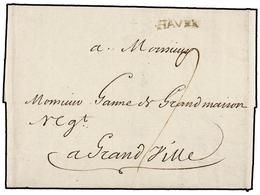 HAVRE
a Monsieur
Monsieur Game de Grandmaison
Negt
a Grand Ville